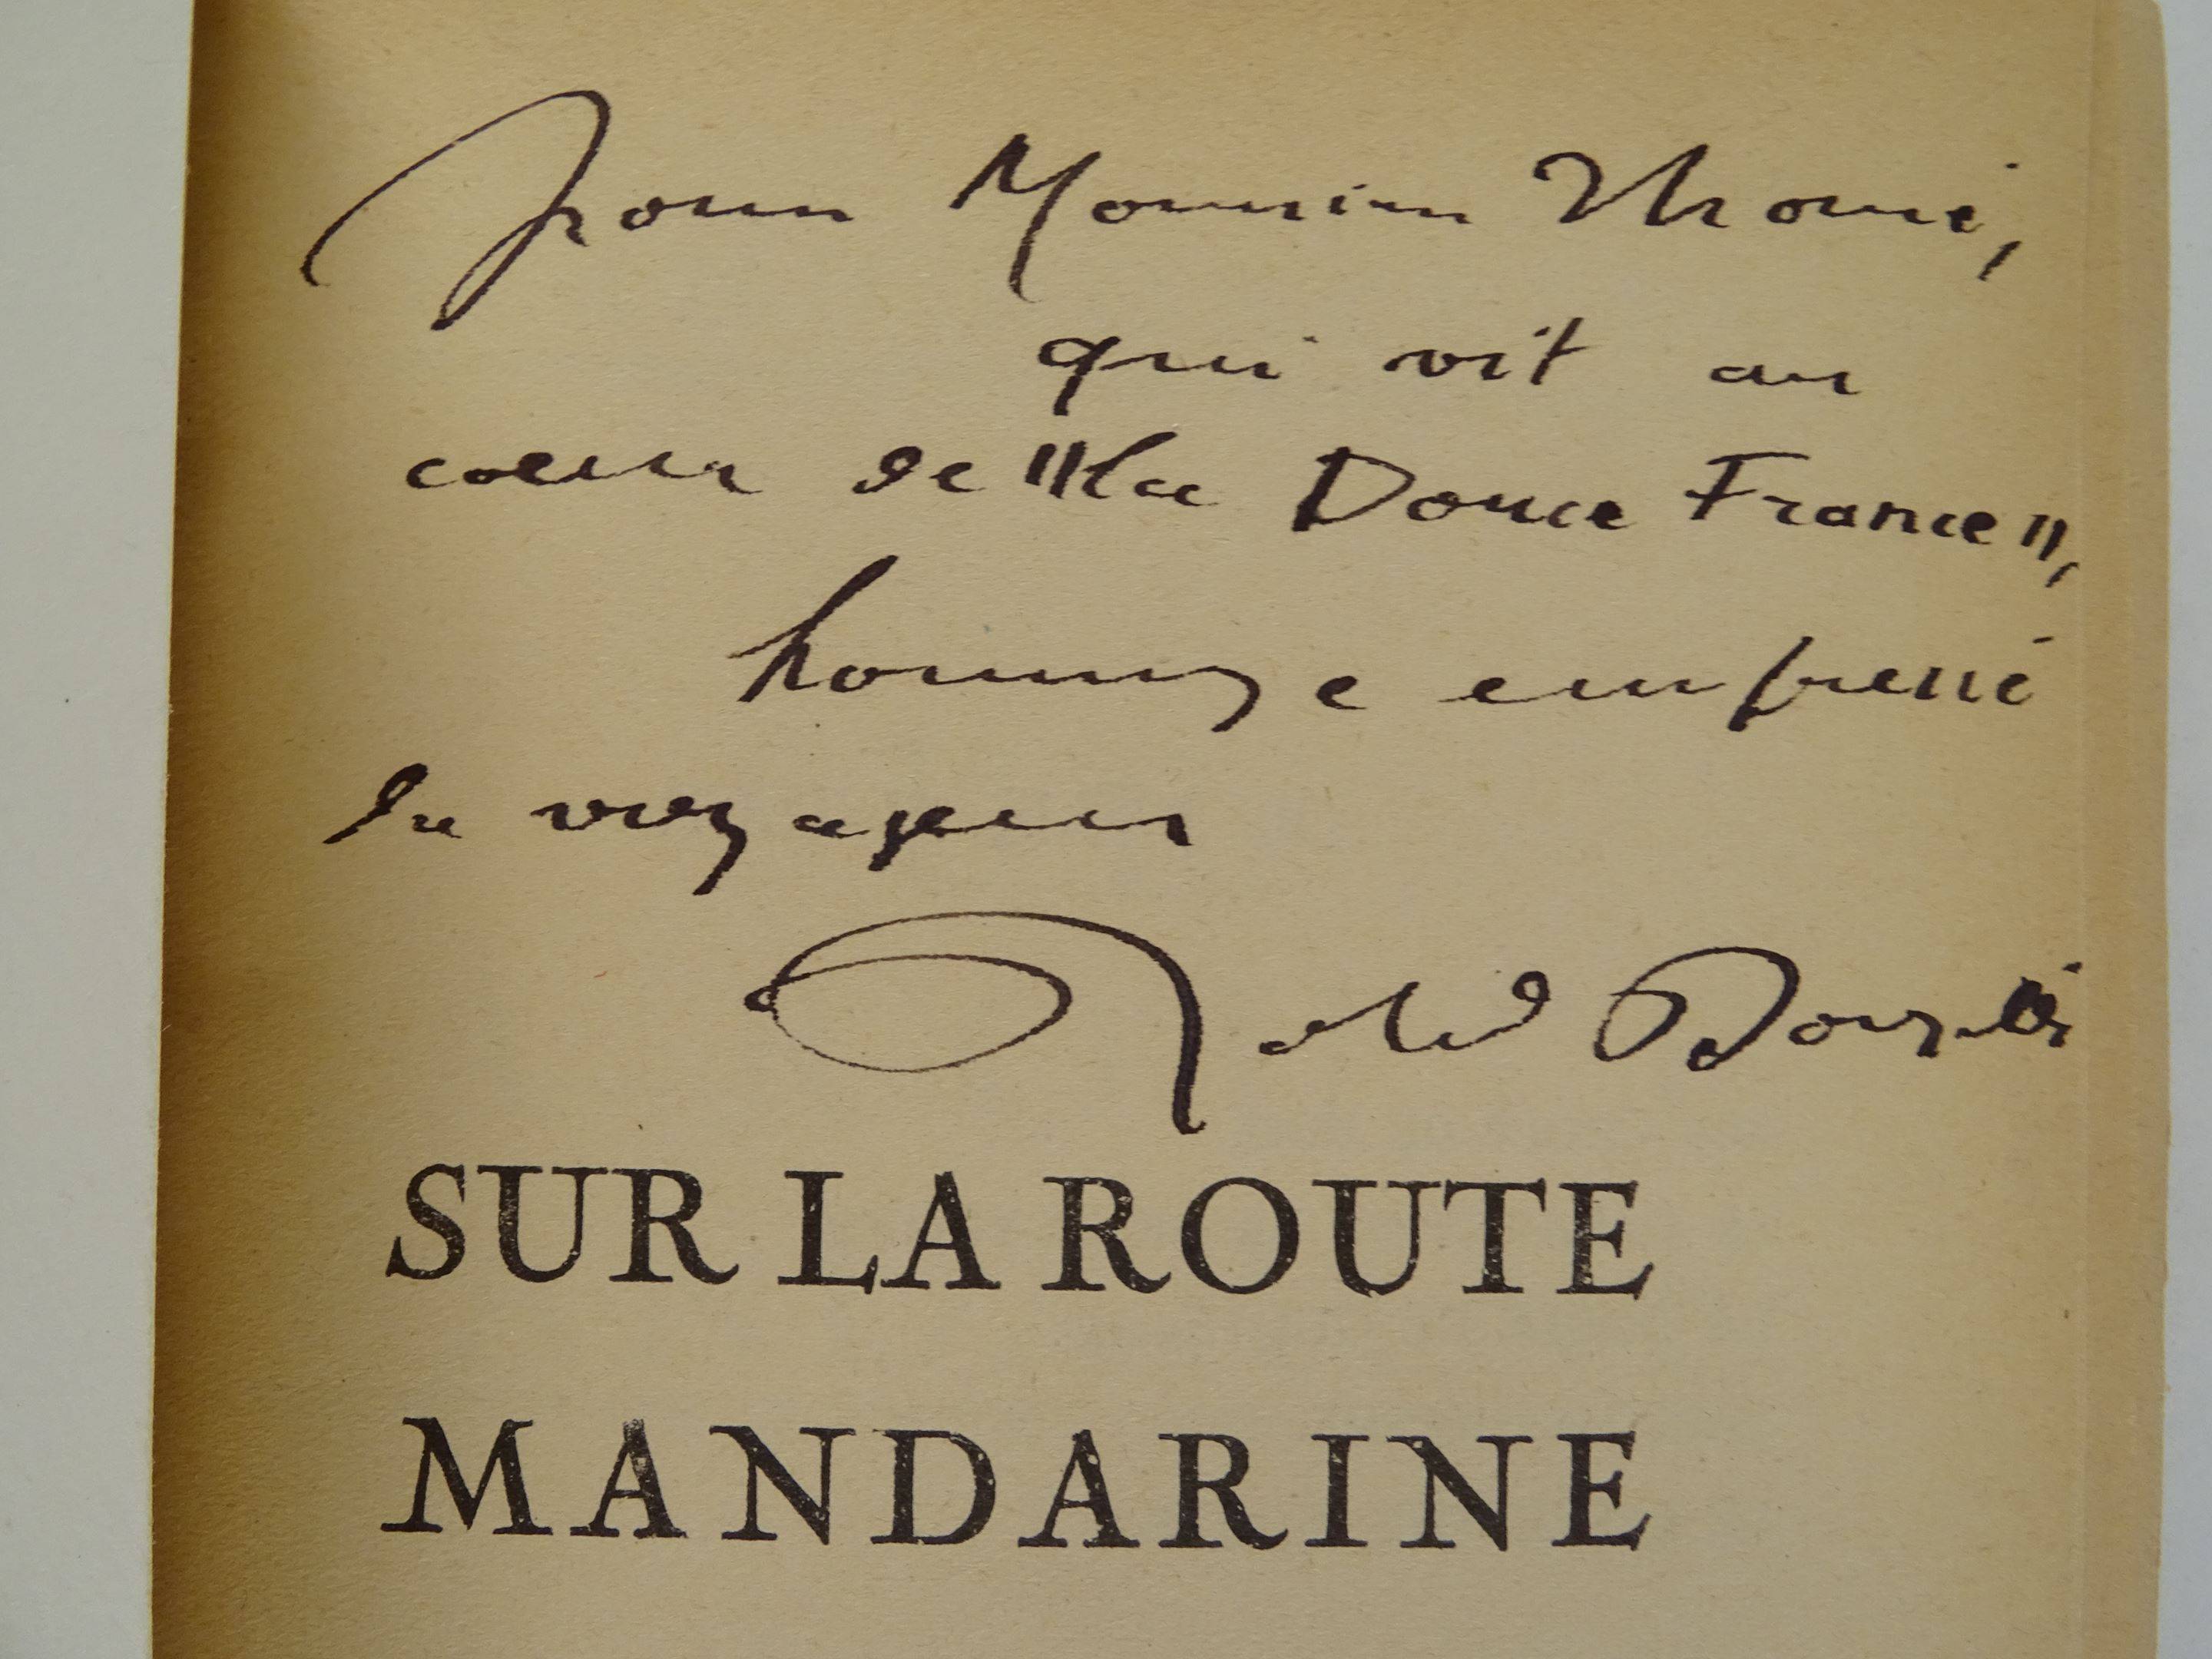 pour Monsieur Thomé,
qui vit au
coeur de "la Douce France",
hommage empressé
du voyageur
Roland Dorgelès
SUR LA ROUTE
MANDARINE